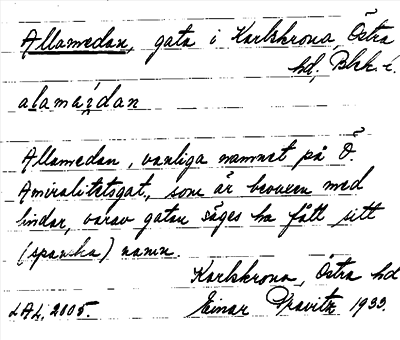 Allamedan, gata i Karlskrona, Östra
hd, Blek. l.
alamądan
Allamedan, vanliga namnet på Ö.
Amiralitetsgat., som är bevuxen med
lindar, varav gatan säges ha fått sitt
(spanska) namn.
Karlskrona, Östra hd
LAL, 2005. Einar Pravitz 1933.